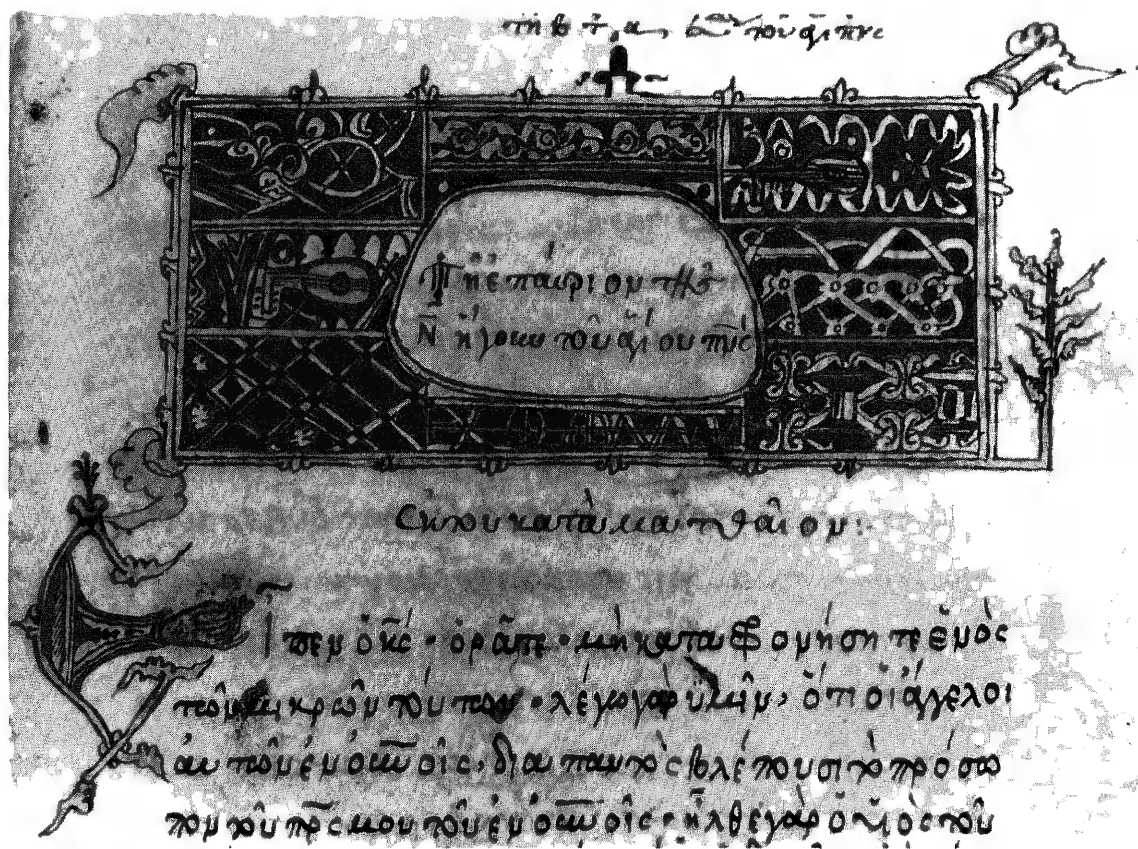 τῇ β τοῦ ἁγί πν̅ς
Τῇ ἐπαύριον τῆς
Ν̅ ἤγουν τοῦ ἁγίου πν̅ς
Ἐκ τοῦ κατὰ ματθαῖον:
Εἶπεν ὁ κ̅ς · ὁρᾶτε · μὴ καταφρονήσητε ἑνὸς
τῶν μικρῶν τούτων · λέγω γὰρ ὑμῖν, ὅτι οἱ ἄγγελοι
αὐτῶν ἐν ο̅υ̅νοῖς, διὰ παντὸς βλέπουσι τὸ πρόσω
πον τοῦ π̅ρ̅ς μου τοῦ ἐν ο̅υ̅νοῖς · ἦλθε γὰρ ὁ υἱὸς τοῦ